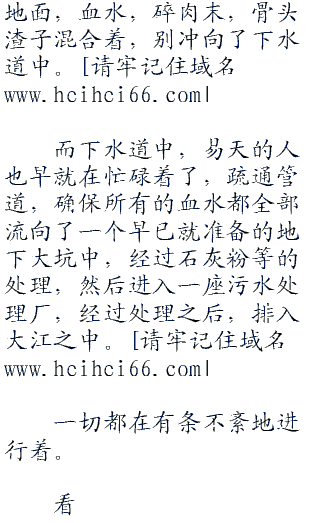 地面，血水，碎肉末，骨头
渣子混合着，别冲向了下水
道中。[请牢记住域名
www.hcihci66.com|
而下水道中，易天的人
也早就在忙碌着了，疏通管
道，确保所有的血水都全部
流向了一个早已就准备的地
下大坑中，经过石灰粉等的
处理，然后进入一座污水处
理厂，经过处理之后，排入
大江之中。[请牢记住域名
www.hcihci66.com|
一切都在有条不紊地进
行着。
看